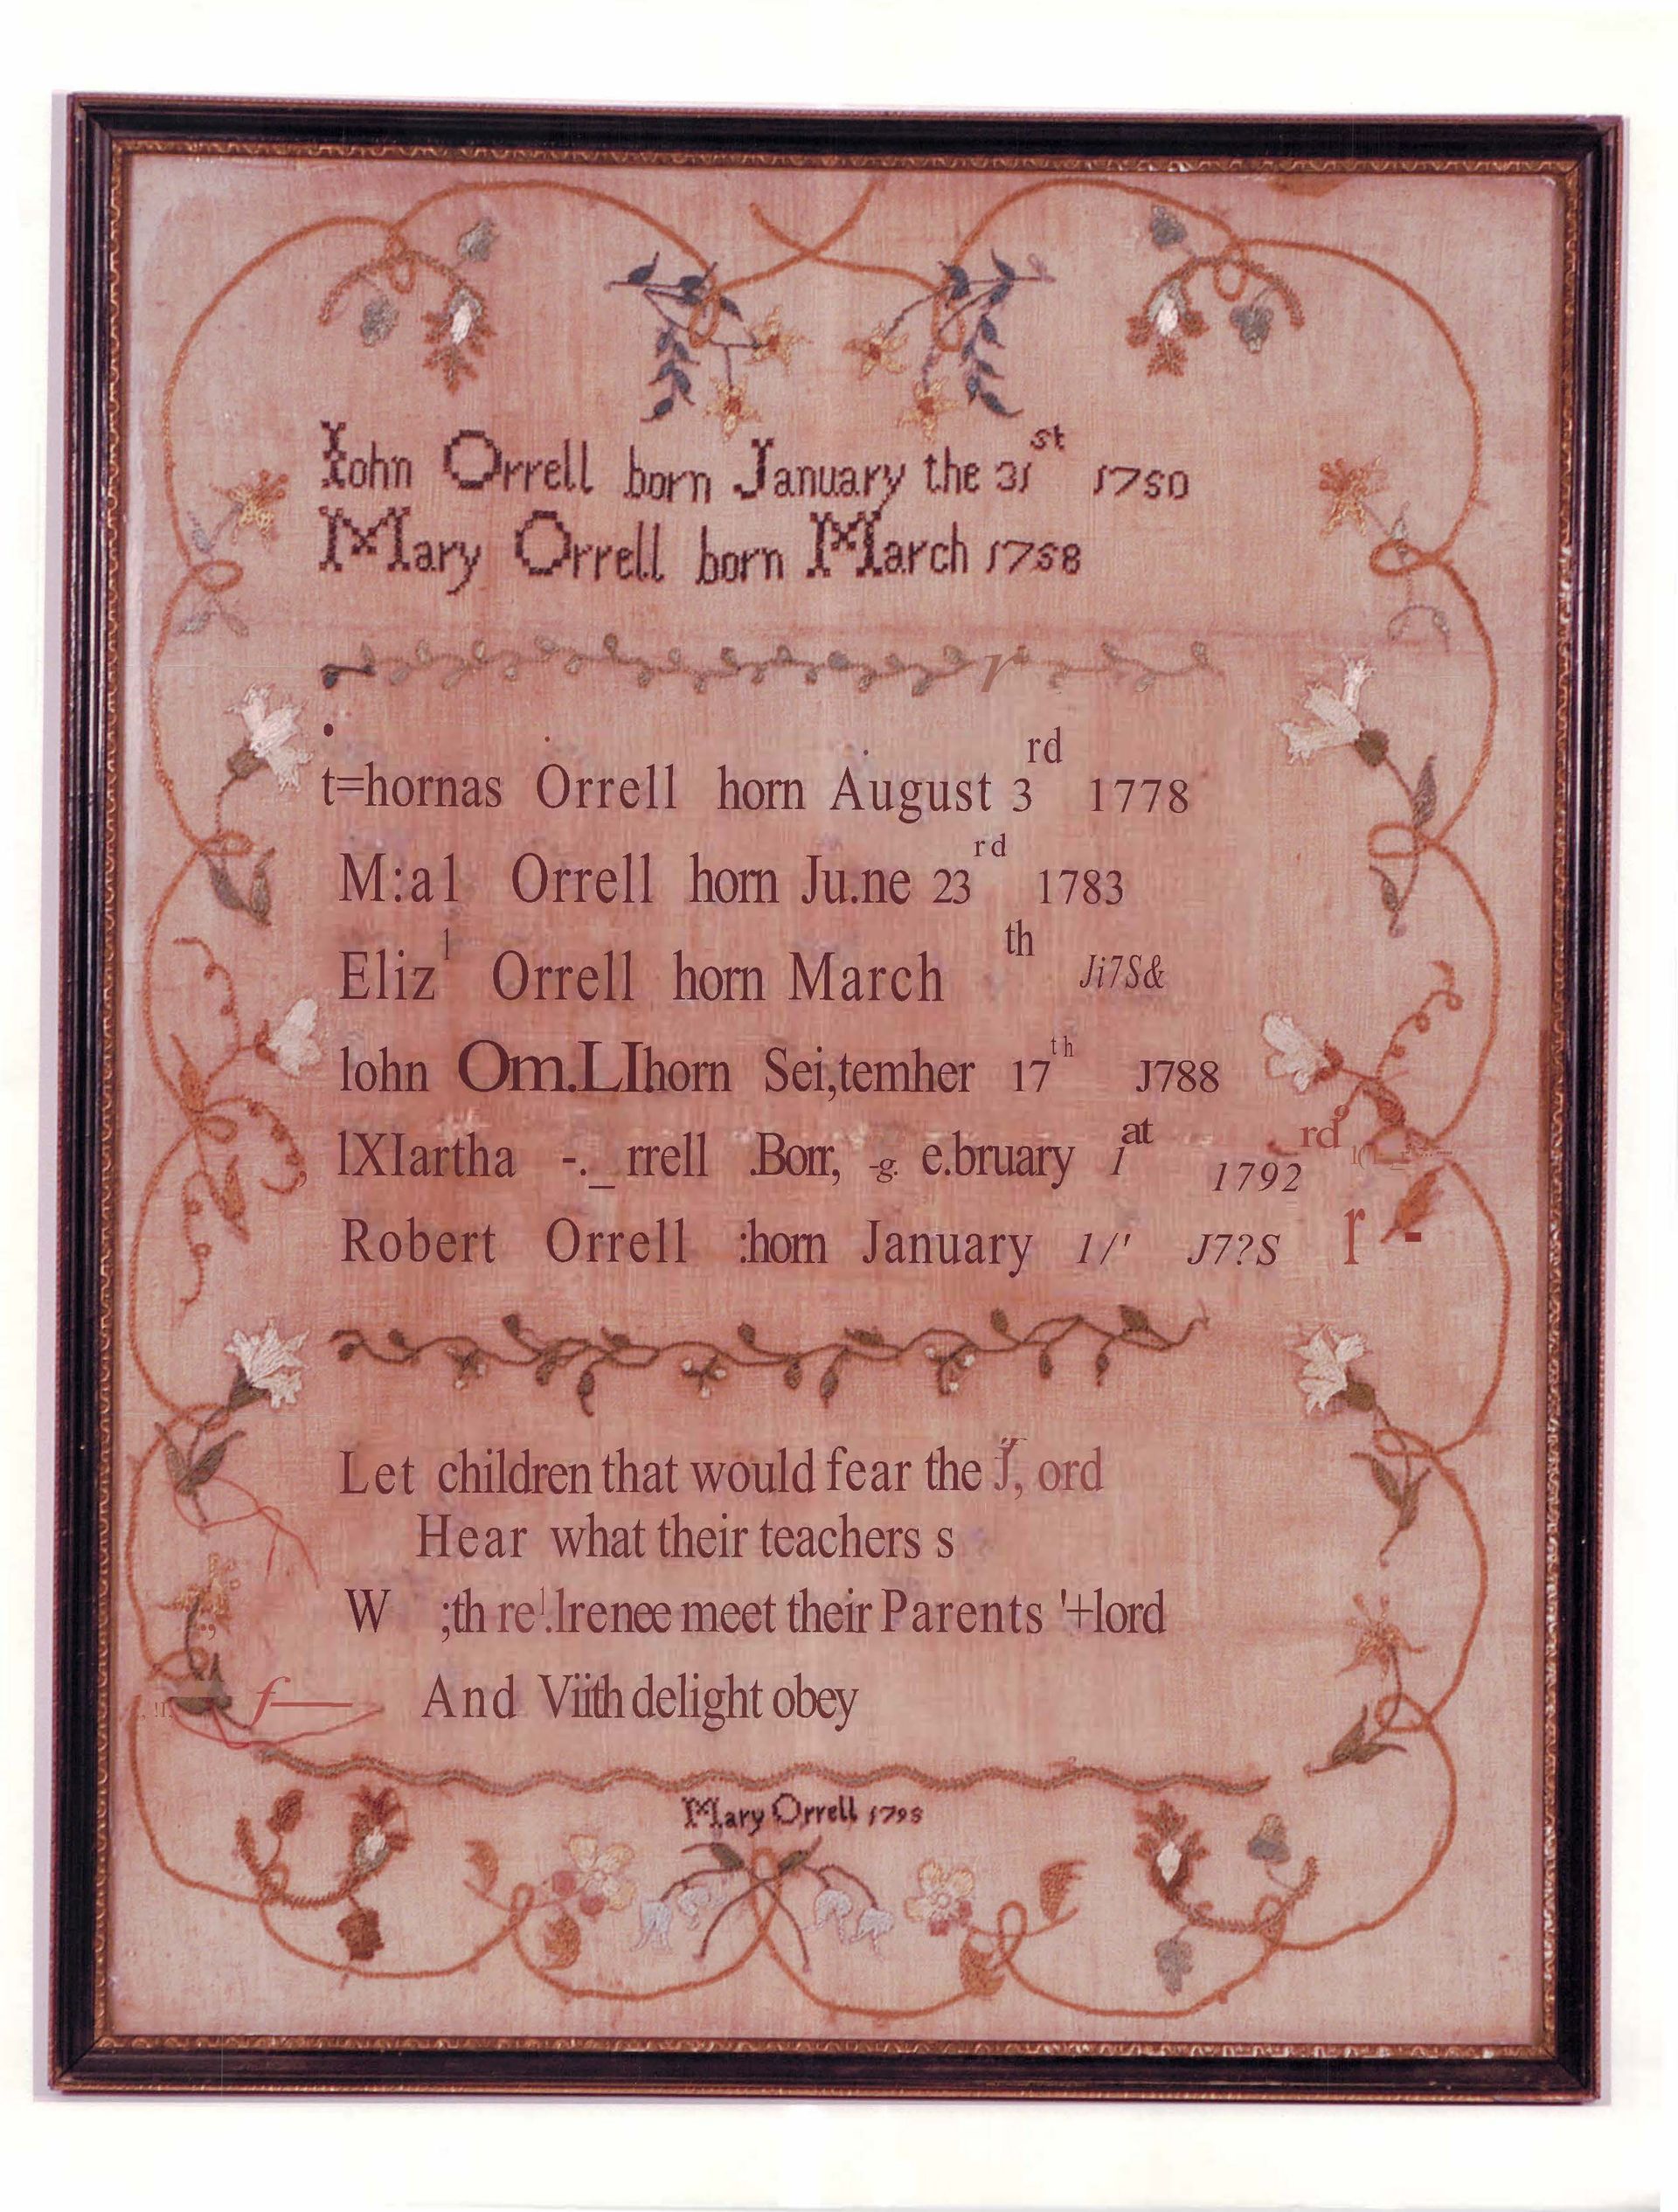 Iohn Orrell born January the 31st 1750
Mary Orrell born March 1758
t=hornas Orrell horn August 3rd 1778
M:a1 Orrell horn Ju.ne 23rd 1783
Eliz Orrell horn March th Ji7S&
lohn Om.LIhorn Sei,temher 17th J788
lXIartha -._rrell .Borr, -g. e.bruary 1at 1792 rd
Robert Orrell :horn January 1/' J7?S r -
Let children that would fear the J, ord
Hear what their teachers s
W ;th re!.lrenee meet their Parents '+lord
And Viith delight obey
Mary Orrell 1795